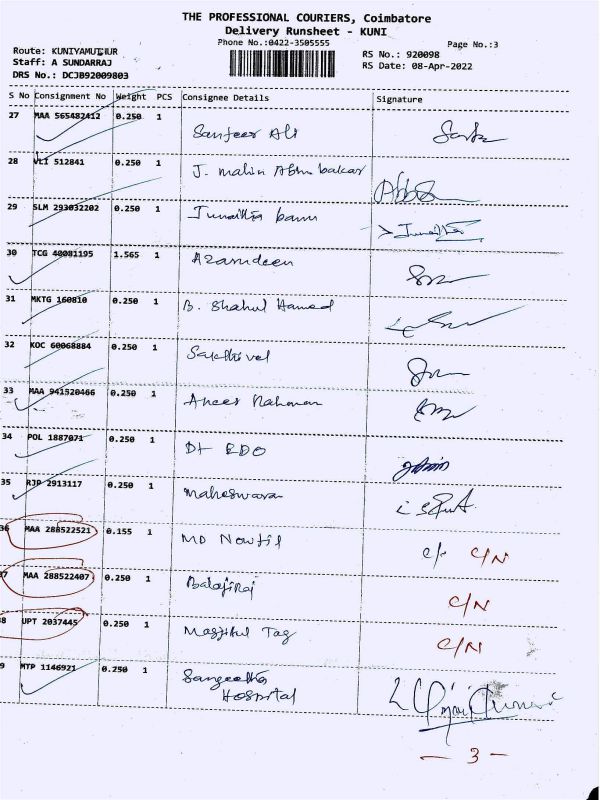 THE PROFESSIONAL COURIERS, Coimbatore
Delivery Runsheet - KUNI
Phone No.:0422-3505555
Page No.:3
Route: KUNIYAMUTHUR
Staff: A SUNDARRAJ
DRS No.: DCJB92009803
RS No.: 920098
RS Date: 08-Apr-2022
S No Consignment No Weight PCS Consignee Details Signature
27 MAA 565482412 0.250 1 Sanjeer Ali
28 VLI 512841 0.250 1 J. Mahin Abbubakar
29 SLM 293032202 0.250 1 Junaithia banu
30 TCG 40081195 1.565 1 Azarudeen
31 MKTG 160810 0.250 1 B. Shahul Hameed
32 KOC 60068884 0.250 1 Sakthivel
33 MAA 941520466 0.250 1 Anees Rahman
34 POL 1887071 0.250 1
35 RJP 2913117 0.250 1 Maheswaran
36 MAA 288522521 0.155 1 MD C/N
37 MAA 288522407 0.250 1 Balajiraj C/N
38 UPT 2037445 0.250 1 C/N
39 MTP 1146921 0.250 1 Sangeetha
Hospital
- 3 -